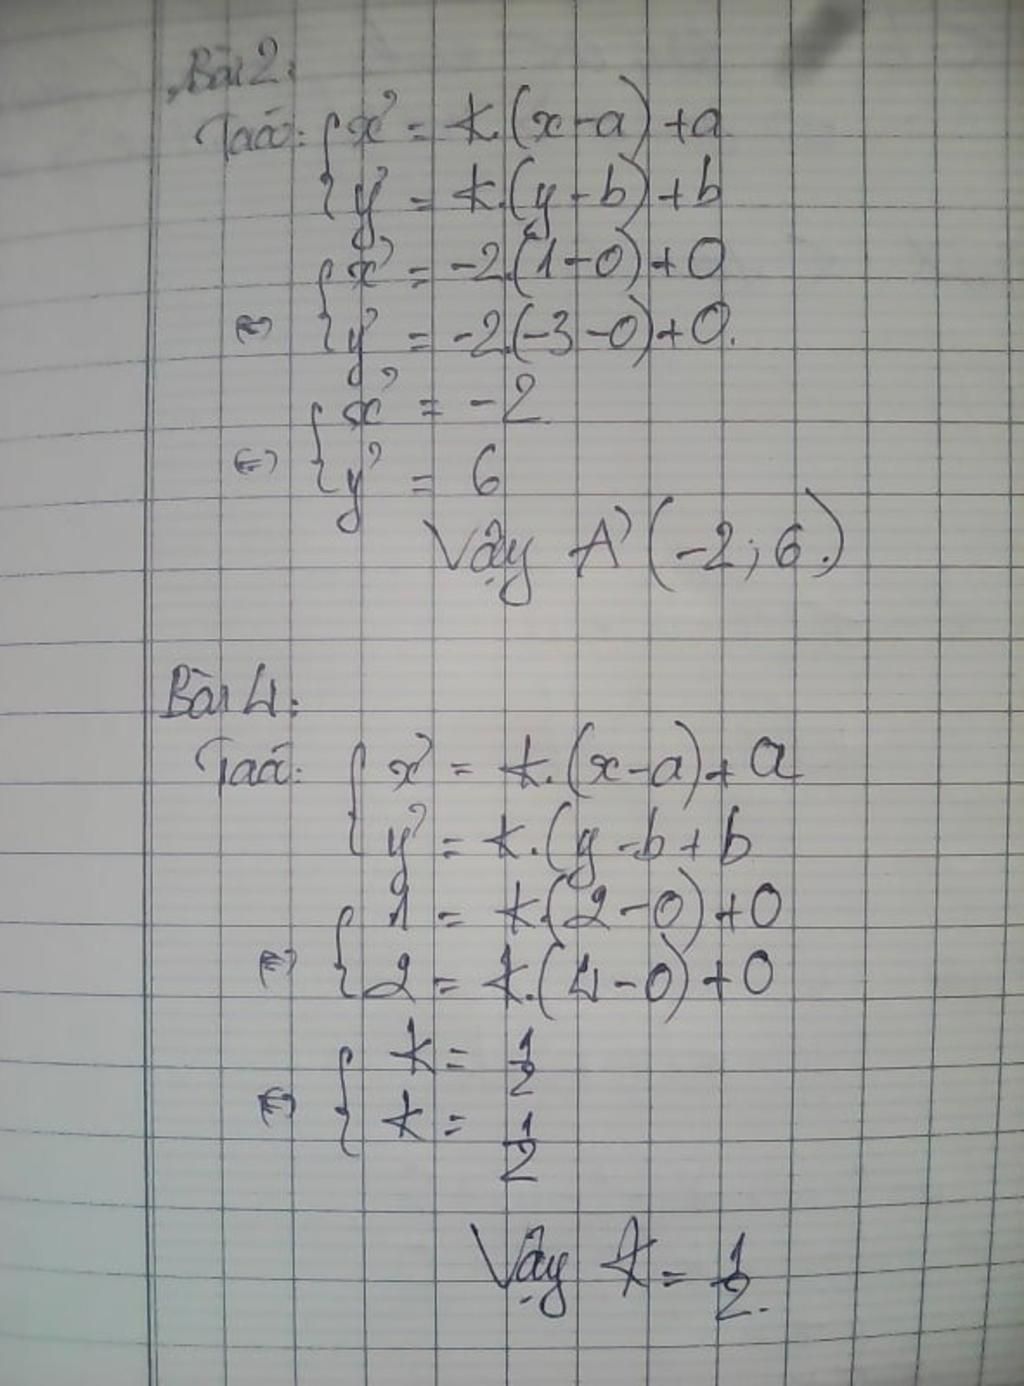 Bài 2:
Ta có: { x' = k.(x-a)+a
{ y' = k.(y-b)+b
{ x' = -2.(1-0)+0
⇔ { y' = -2.(-3-0)+0.
{ x' = -2
⇔ { y' = 6
Vậy A'(-2;6.)
Bài 4:
Ta có: { x' = k.(x-a)+a
{ y' = k.(y-b+b
{ 1 = k.(2-0)+0
⇔ { 2 = k.(4-0)+0
{ k = 1/2
⇔ { k = 1/2
Vậy k = 1/2.